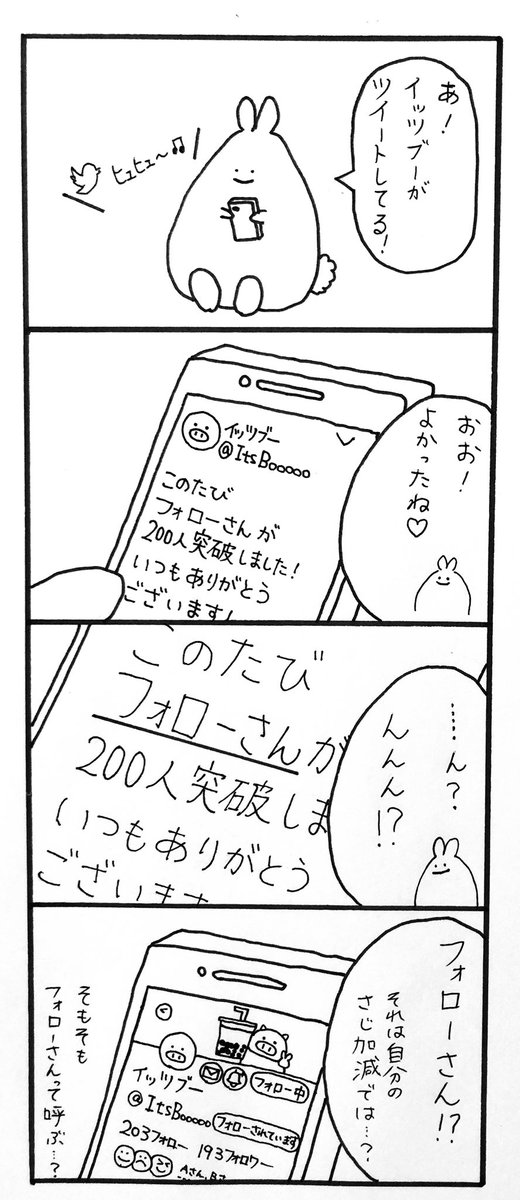 あ!
イッツブーが
ツイートしてる!
ヒュヒュ〜♫
おお!
よかったね♡
イッツブー
@ItsBooooo
このたび
フォローさんが
200人突破しました!
いつもありがとう
ございます!
……ん?
んんん!?
このたび
フォローさんが
200人突破しま
いつもありがとう
ございます
フォローさん!?
それは自分の
さじ加減では…?
フォロー中
イッツブー
@ItsBooooo
フォローされています
203フォロー 193フォロワー
Aさん、Bさ
そもそも
フォローさんって呼ぶ…?